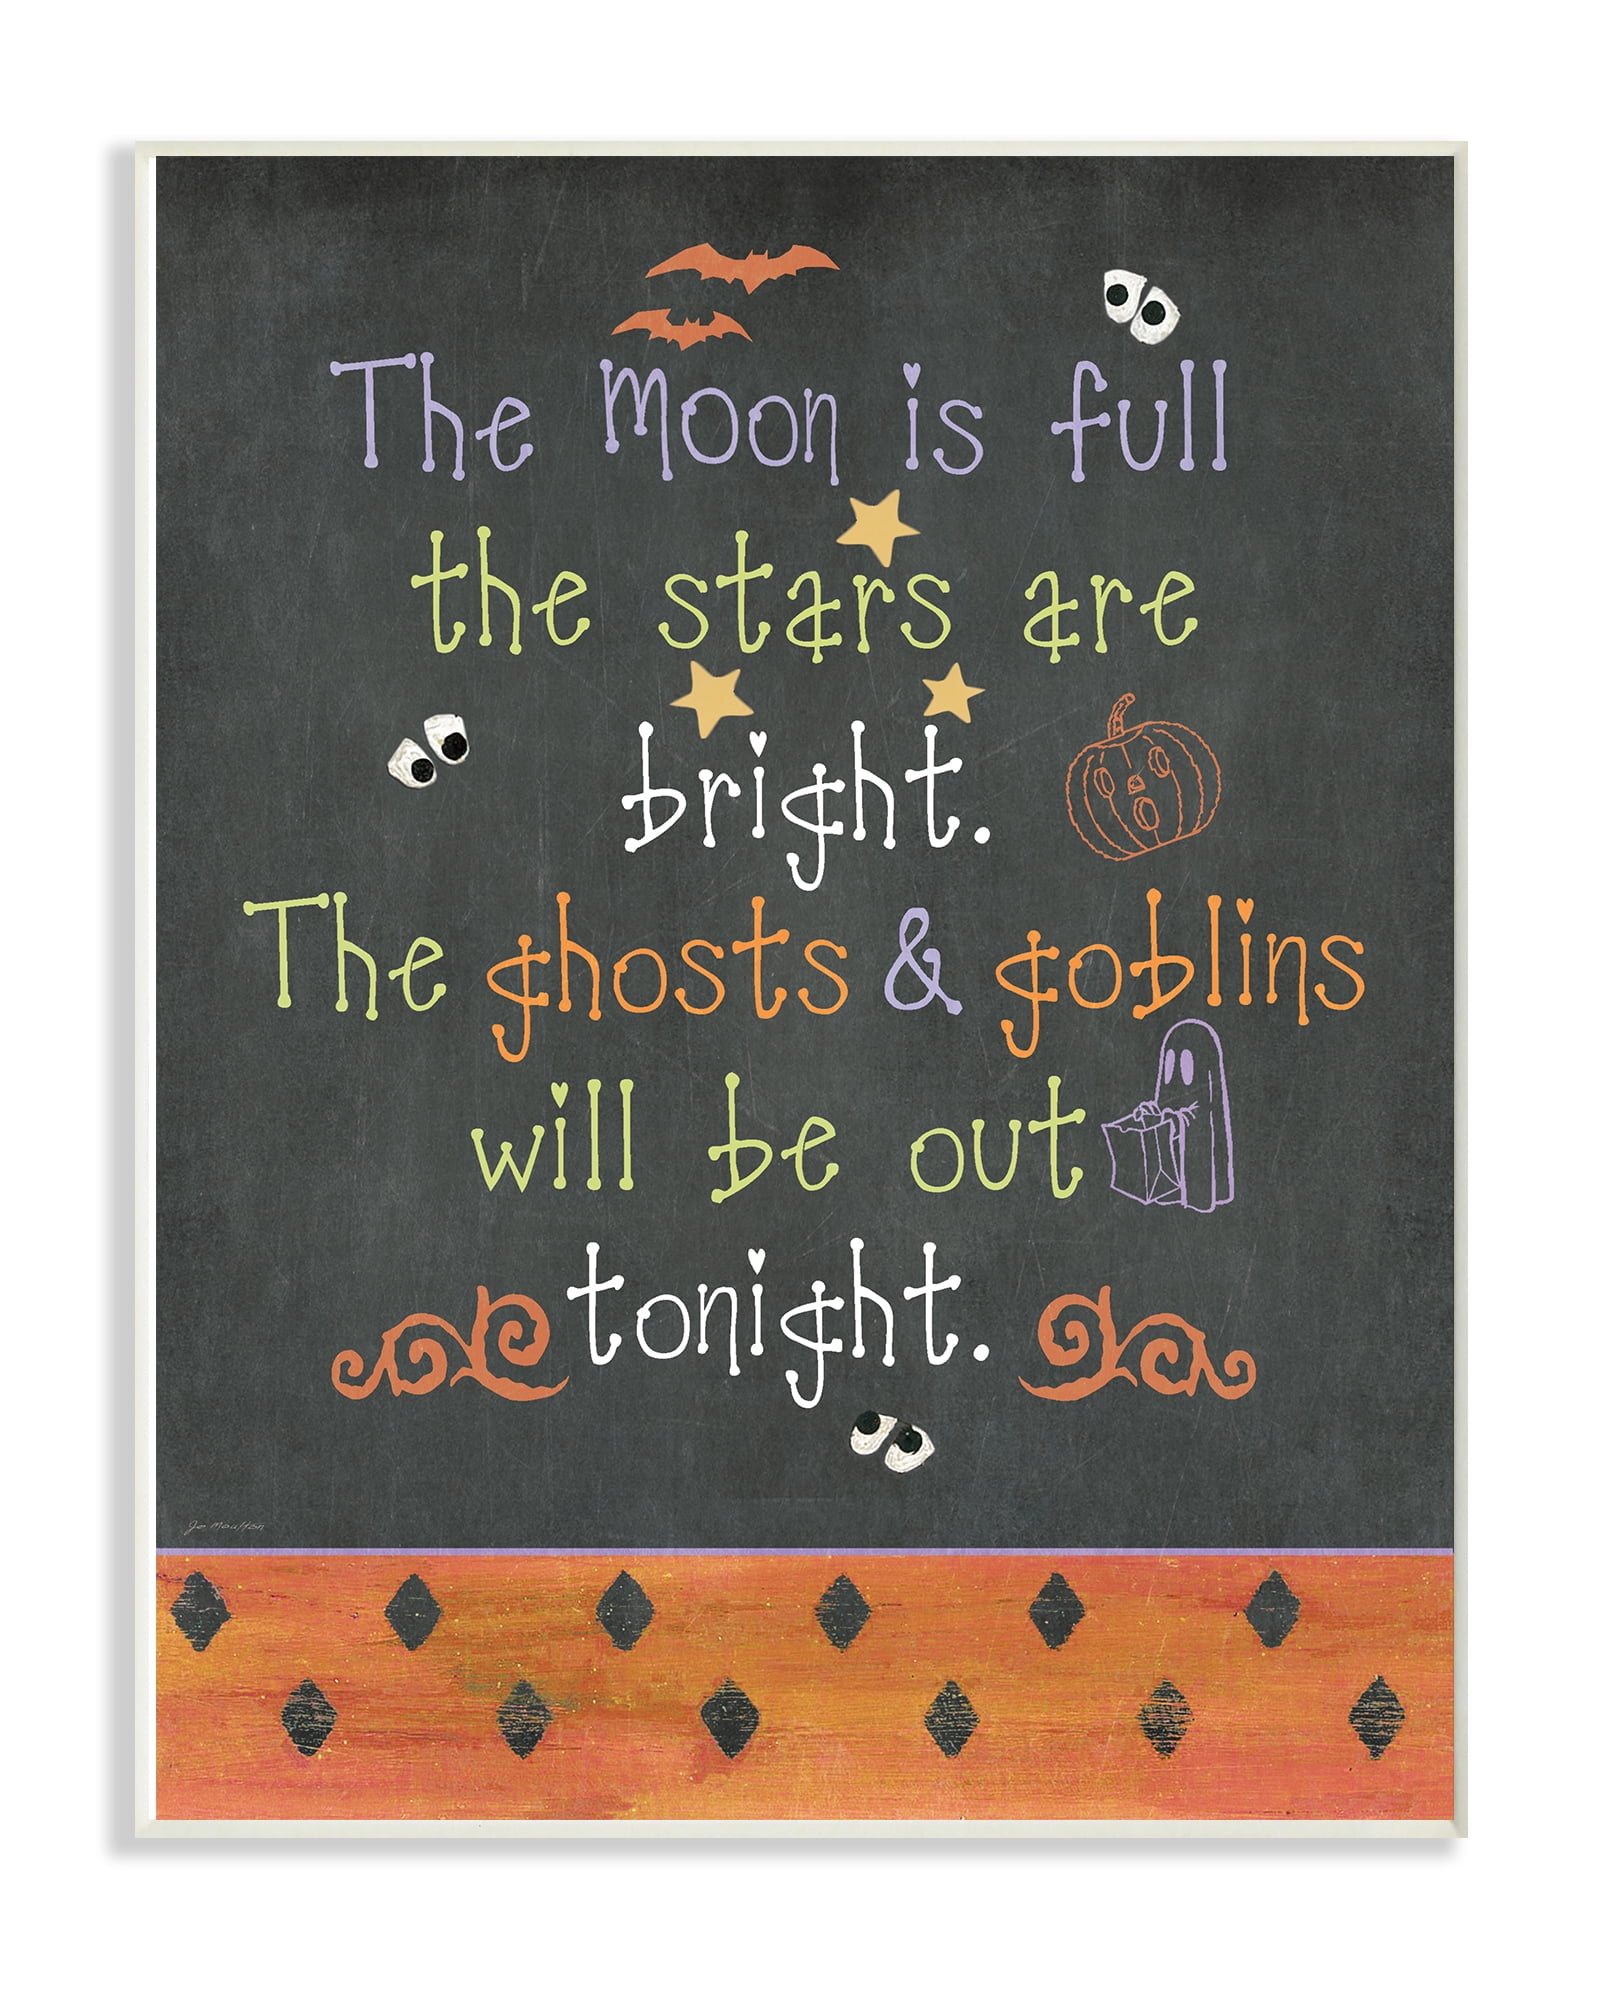 The moon is full
the stars are
bright.
The ghosts & goblins
will be out
tonight.
Jo Moulton